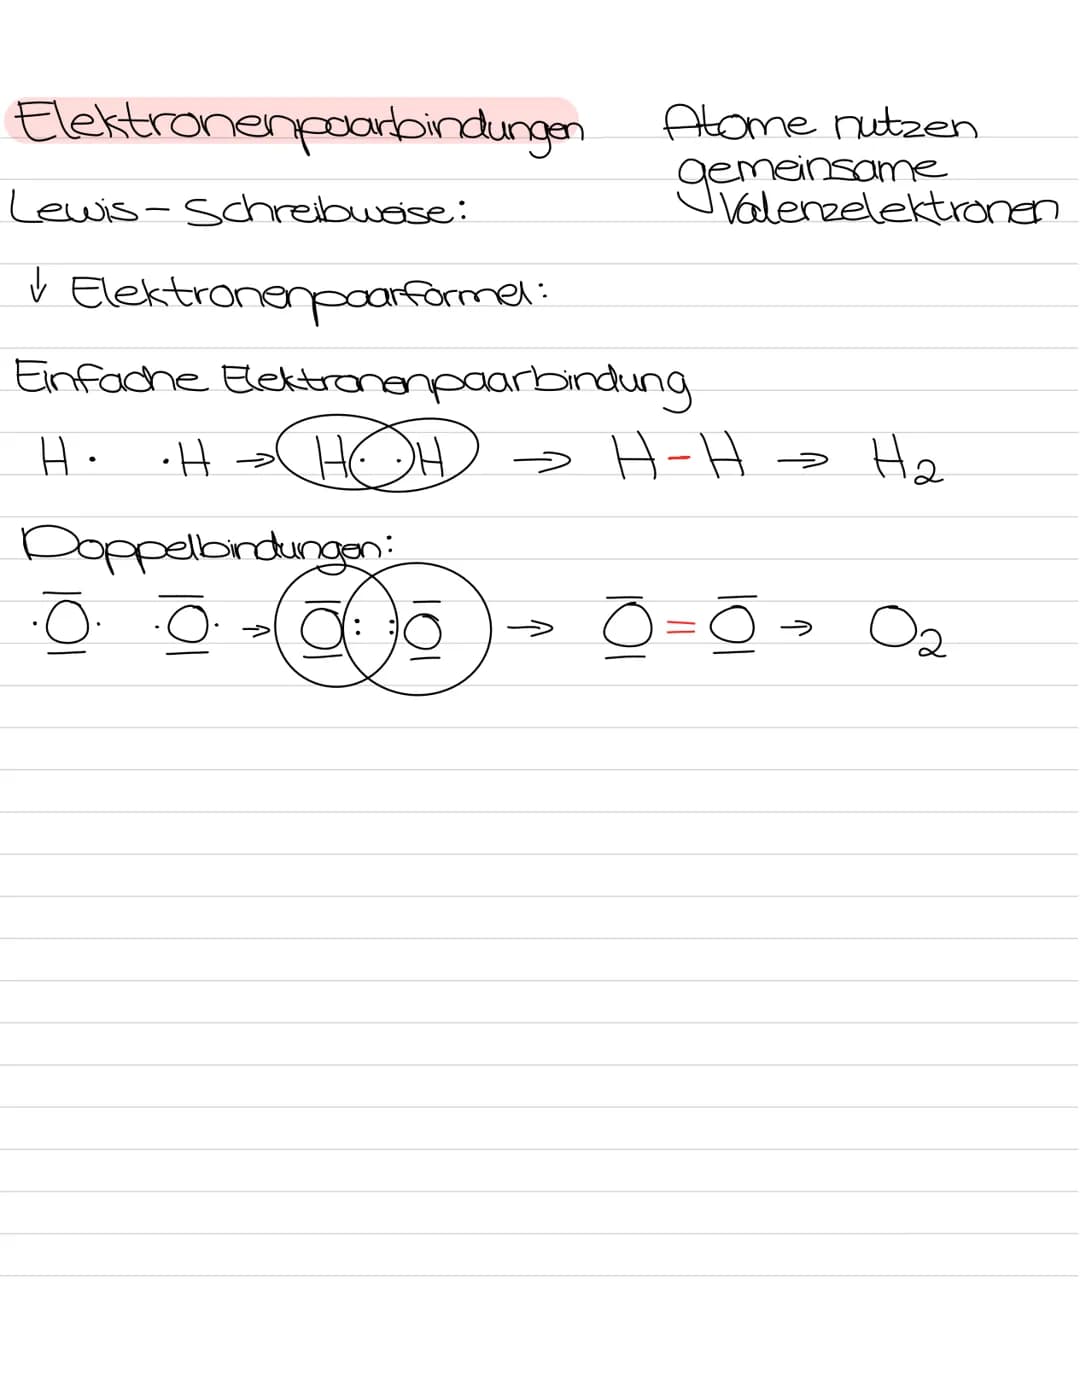 Elektronenpaarbindungen
Atome nutzen
gemeinsame
Valenzelektronen
Lewis-Schreibweise:
↓ Elektronenpaarformel:
Einfache Elektronenpaarbindung
H· ·H → H· ·H → H-H → H₂
Doppelbindungen:
·O̲̅· ·O̲̅· → O̲̅: :O̲̅ → O̲̅=O̲̅ → O₂